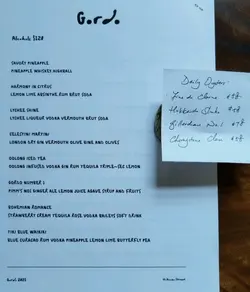 Gord.
Alcohols $128
SAVORY PINEAPPLE
PINEAPPLE WHISKEY HIGHBALL
HARMONY IN CITRUS
LEMON LIME ABSINTHE RUM BRUT SODA
LYCHEE SHINE
LYCHEE LIQUEUR VODKA VERMOUTH BRUT SODA
CELESTINI MARTINI
LONDON DRY GIN VERMOUTH OLIVE BINE AND OLIVES
OOLONG ICED TEA
OOLONG INFUSED VODKA GIN RUM TEQUILA TRIPLE-SEC LEMON
GORDO NUMBER 1
PIMM'S NO1 GINGER ALE LEMON JUICE AGAVE SYRUP AND FRUITS
BOHEMIAN ROMANCE
STRAWBERRY CREAM TEQUILA ROSE VODKA BAILEYS SOFT DRINK
TIKI BLUE WAIKIKI
BLUE CURACAO RUM VODKA PINEAPPLE LEMON LIME BUTTERFLY PEA
Gord. 2025
Daily Oysters:
Fine de Claire
Hokkaido
Gillardeau